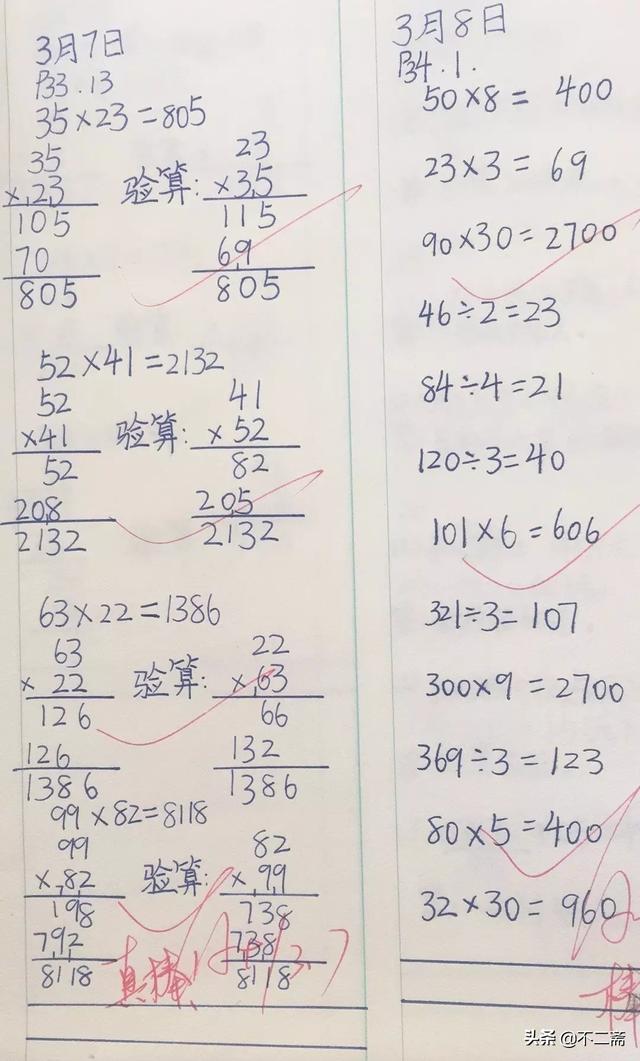 3月7日
P33.13
35×23=805
35
×23
105
70
805
验算:
23
×35
115
69
805
52×41=2132
52
×41
52
208
2132
验算:
41
×52
82
205
2132
63×22=1386
63
×22
126
126
1386
验算:
22
×63
66
132
1386
99×82=8118
99
×82
198
792
8118
验算:
82
×99
738
738
8118
真棒
3.7
3月8日
P34.1.
50×8=400
23×3=69
90×30=2700
46÷2=23
84÷4=21
120÷3=40
101×6=606
321÷3=107
300×9=2700
369÷3=123
80×5=400
32×30=960
棒
头条 @不二斋